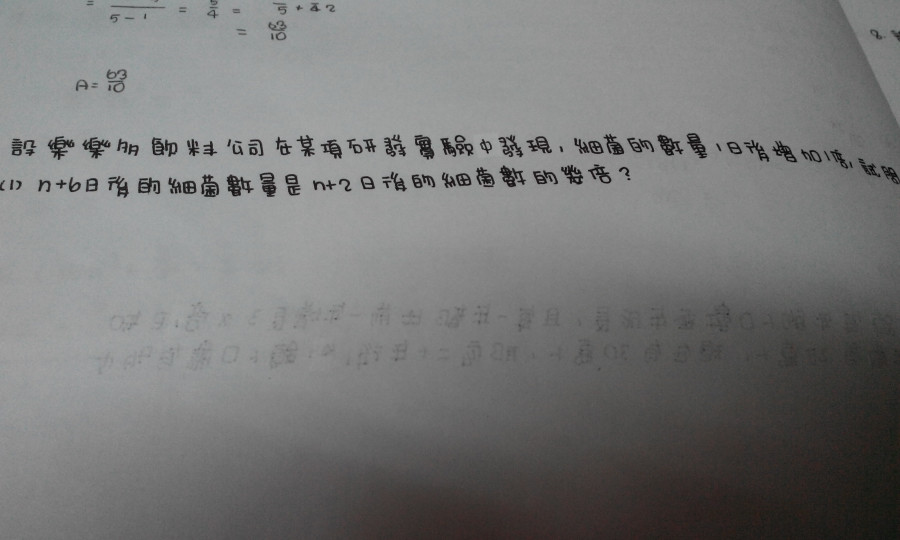 = 5-1 = 5/4 = 5 + 42
= 63/10
A = 63/10
設樂樂朋飲料公司在某項研發實驗中發現,細菌的數量1日後增加1倍,試
(1) n+6日後的細菌數量是n+2日後的細菌數的幾倍?